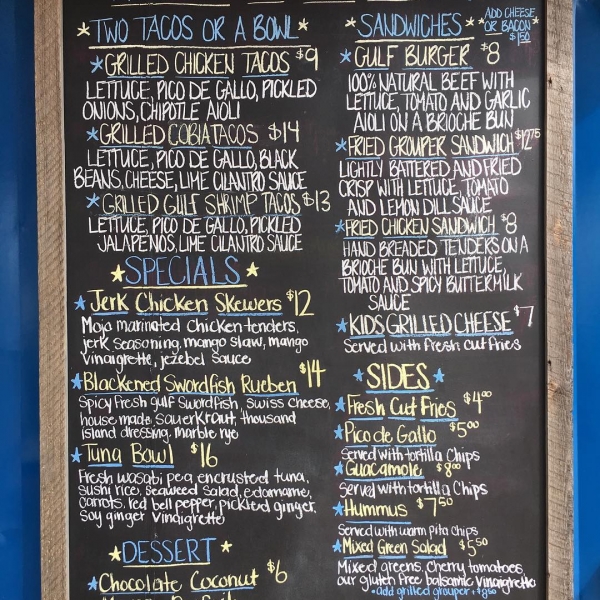 TWO TACOS OR A BOWL
GRILLED CHICKEN TACOS $9
LETTUCE, PICO DE GALLO, PICKLED
ONIONS, CHIPOTLE AIOLI
GRILLED COBIA TACOS $14
LETTUCE, PICO DE GALLO, BLACK
BEANS, CHEESE, LIME CILANTRO SAUCE
GRILLED GULF SHRIMP TACOS $13
LETTUCE, PICO DE GALLO, PICKLED
JALAPENOS, LIME CILANTRO SAUCE
SPECIALS
Jerk Chicken Skewers $12
Mojo marinated chicken tenders,
jerk seasoning, mango slaw, mango
vinaigrette, jezebel sauce
Blackened Swordfish Rueben $14
Spicy fresh gulf Swordfish, Swiss cheese,
house made sauerkraut, thousand
island dressing, marble rye
Tuna Bowl $16
Fresh wasabi pea encrusted tuna,
sushi rice, seaweed salad, edamame,
carrots, red bell pepper, pickled ginger,
soy ginger vinaigrette
DESSERT
Chocolate, Coconut $6
SANDWICHES
ADD CHEESE
OR BACON
$1.50
GULF BURGER $8
100% NATURAL BEEF WITH
LETTUCE, TOMATO AND GARLIC
AIOLI ON A BRIOCHE BUN
FRIED GROUPER SANDWICH $12.75
LIGHTLY BATTERED AND FRIED
CRISP WITH LETTUCE, TOMATO
AND LEMON DILL SAUCE
FRIED CHICKEN SANDWICH $8
HAND BREADED TENDERS ON A
BRIOCHE BUN WITH LETTUCE,
TOMATO AND SPICY BUTTERMILK
SAUCE
KIDS GRILLED CHEESE $7
Served with fresh cut fries
SIDES
Fresh Cut Fries $4.00
Pico de Gallo $5.00
Served with tortilla Chips
Guacamole $8.00
Served with tortilla Chips
Hummus $7.50
Served with warm Pita Chips
Mixed Green Salad $5.50
Mixed greens, cherry tomatoes,
our gluten free balsamic vinaigrette
add grilled grouper